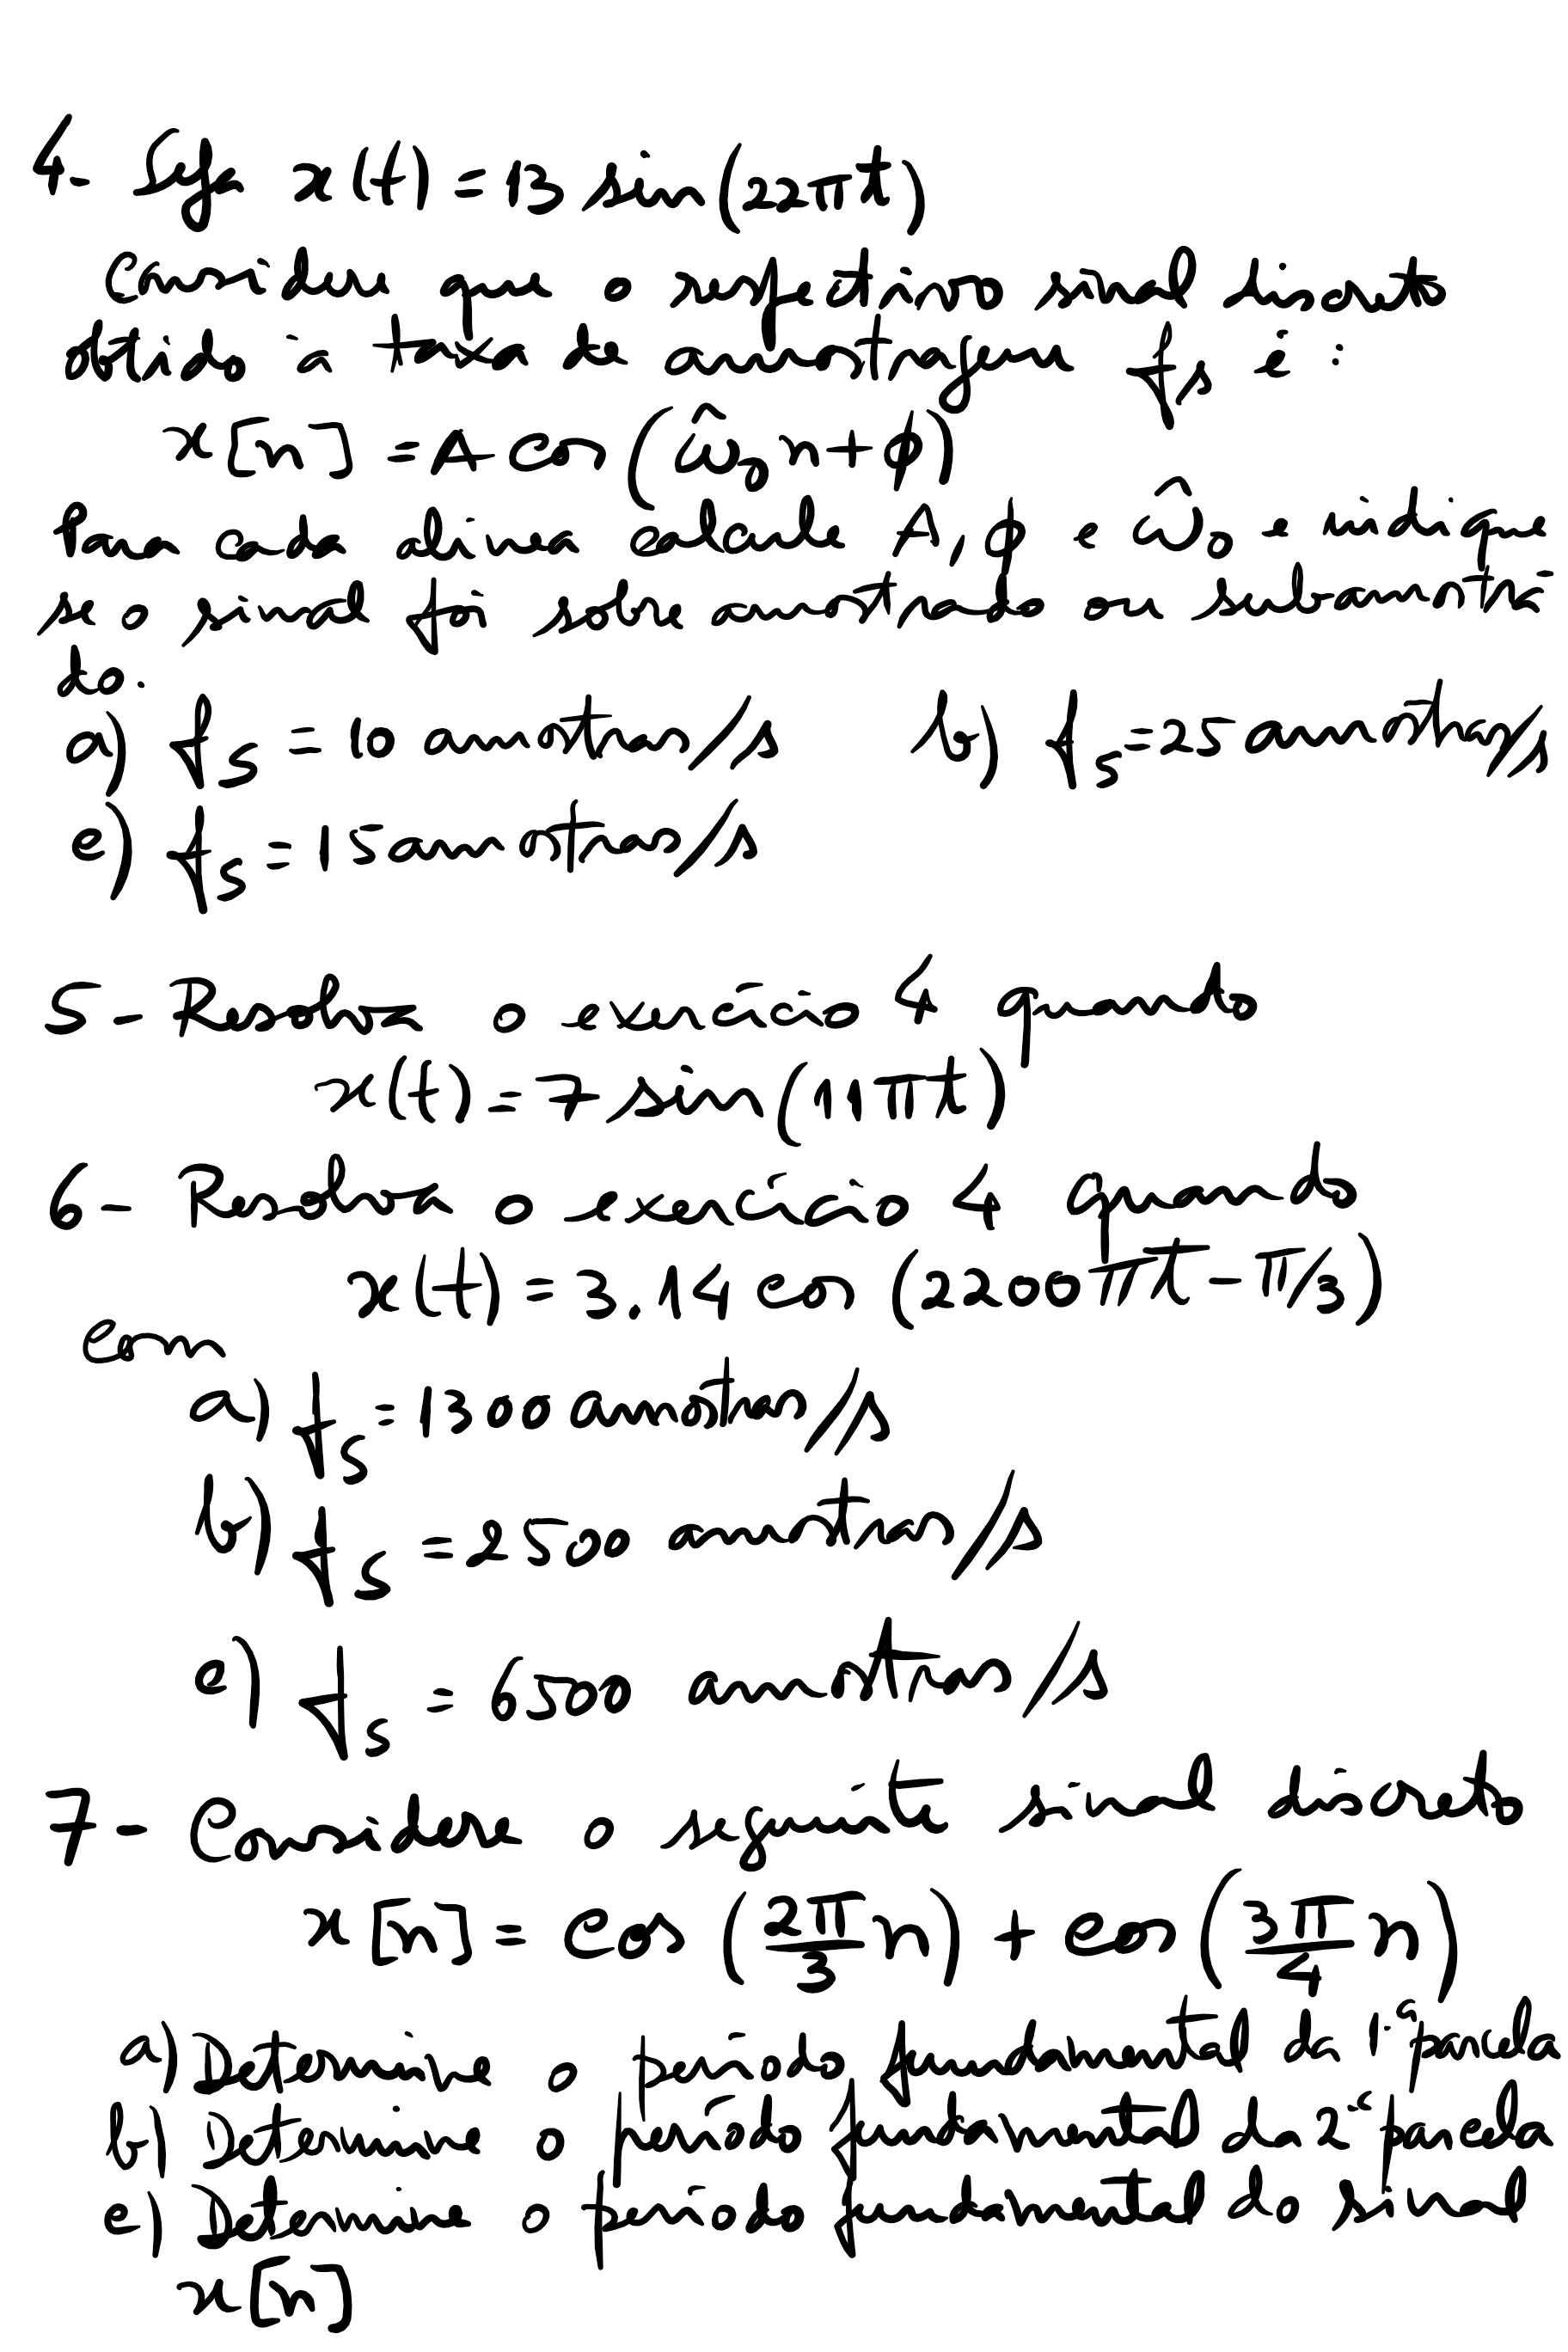 4- Seja x(t) = 13 sin(22πt)
Considere que o respectivo sinal discreto
obtido à taxa de amostragem fs é:
x[n] = A cos(ω̂₀n+φ)
Para cada alínea calcule A, φ e ω̂₀ e indique
se o sinal foi sobreamostrado ou subamostra
do.
a) fs = 10 amostras/s b) fs = 25 amostras/s
c) fs = 15 amostras/s
5- Resolva o exercício 4 quando
x(t) = 7 sin(11πt)
6- Resolva o exercício 4 quando
x(t) = 3.14 cos(2200πt - π/3)
com
a) fs = 1300 amostras/s
b) fs = 2500 amostras/s
c) fs = 6500 amostras/s
7- Considere o seguinte sinal discreto
x[n] = cos(2π/3 n) + cos(3π/4 n)
a) Determine o período fundamental da 1ª parcela
b) Determine o período fundamental da 2ª parcela
c) Determine o período fundamental do sinal
x[n]